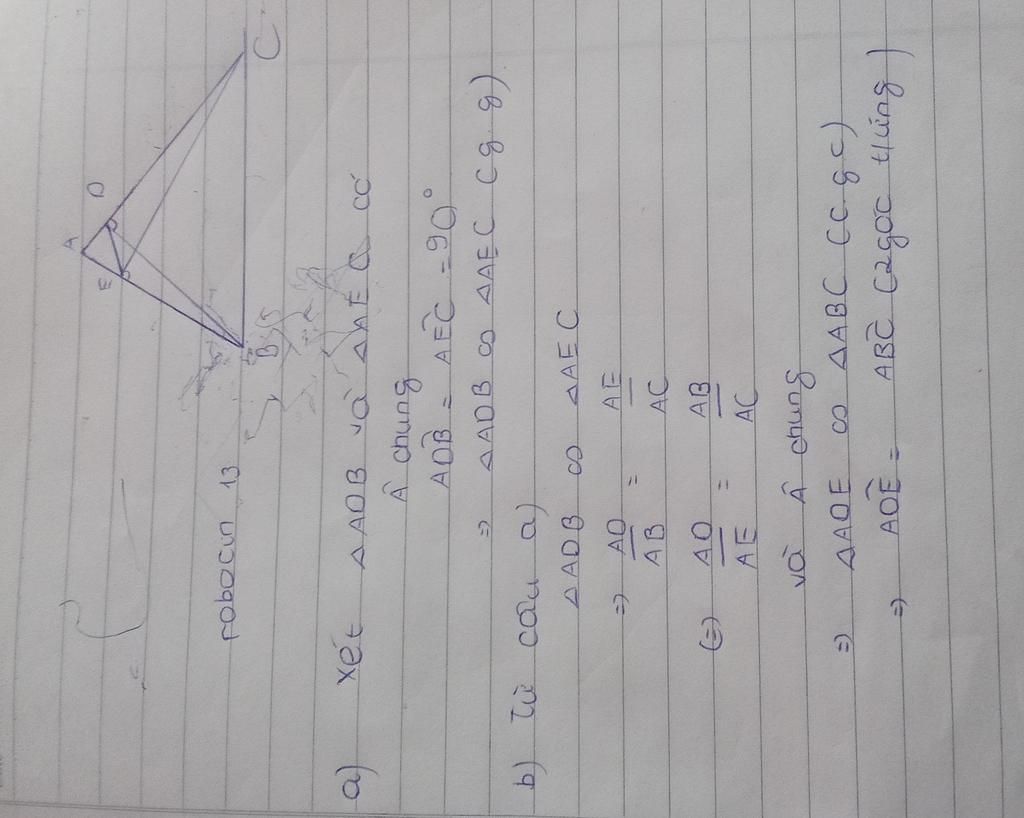 A
D
E
B
C
robocun 13
a) Xét △ADB và △AEC có
Â chung
ADB̂ = AEĈ = 90°
⇒ △ADB ∽ △AEC (g.g)
b) Từ câu a)
△ADB ∽ △AEC
⇒ AD/AB = AE/AC
(=) AD/AE = AB/AC
và Â chung
⇒ △ADE ∽ △ABC (c g c)
⇒ ADÊ = ABĈ (2 góc t/ứng)